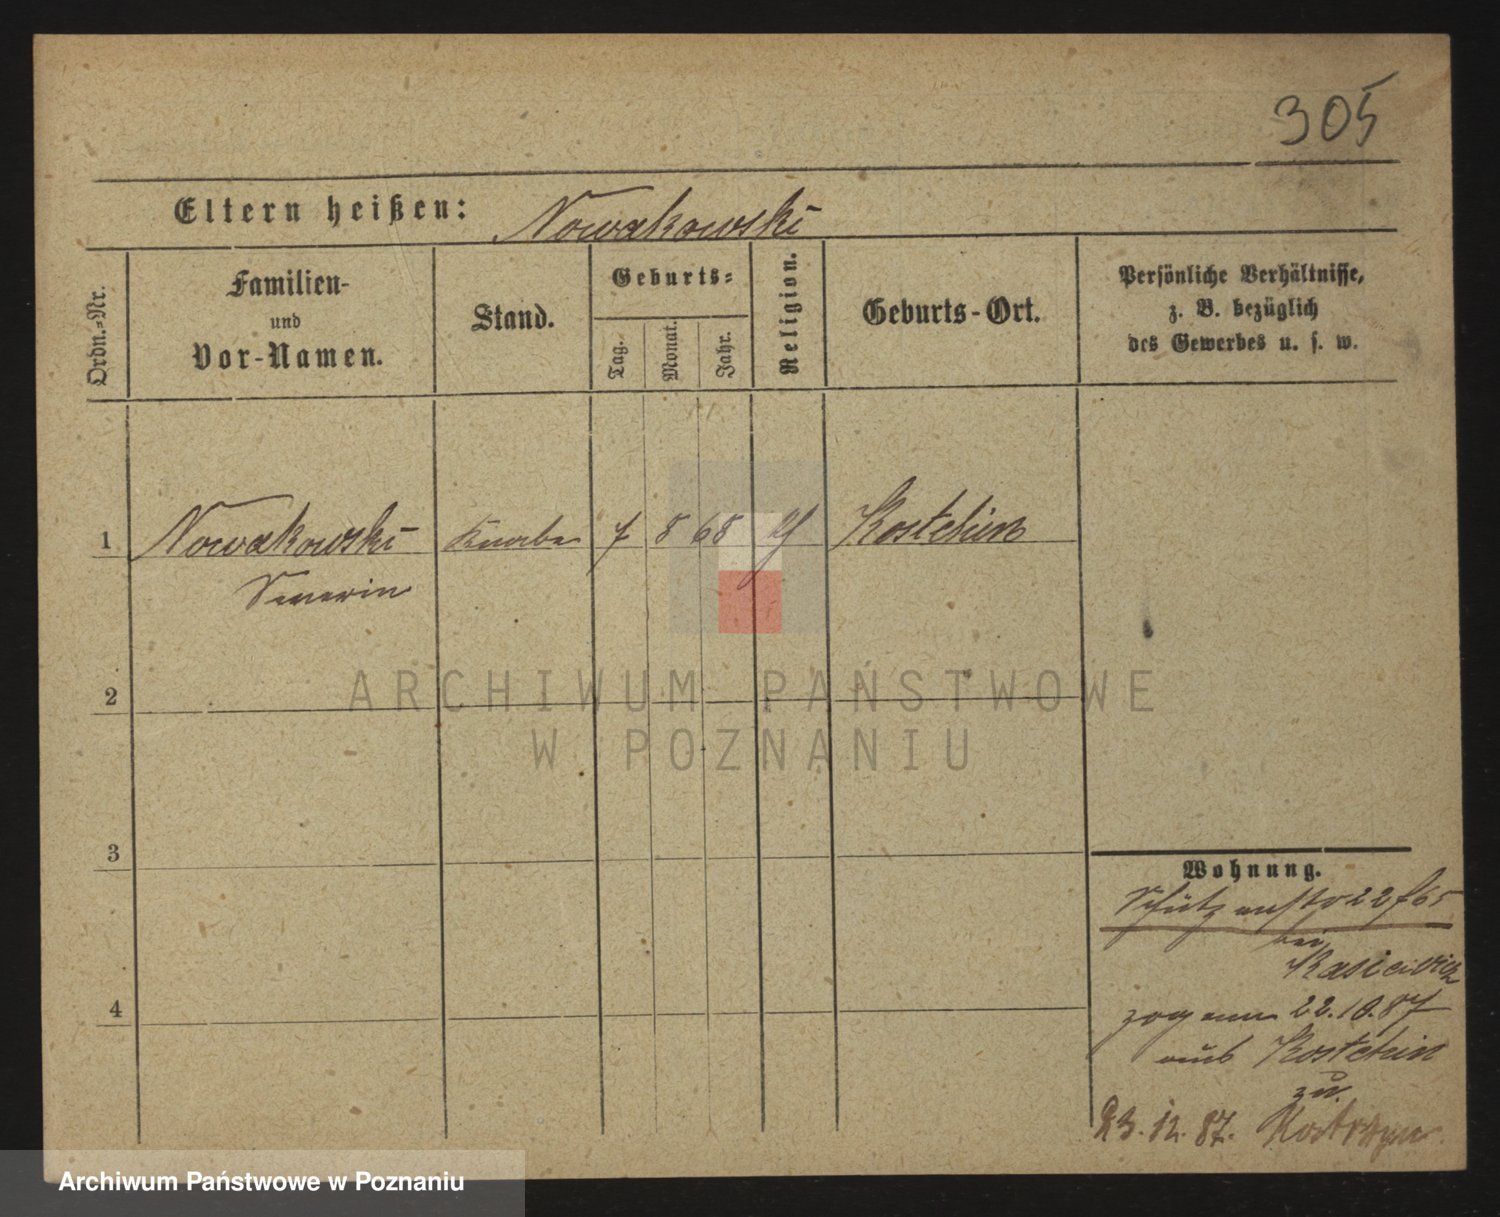 305
Eltern heißen: Nowakowski
Ordn.-Nr.
Familien-
und
Vor-Namen.
Stand.
Geburts-
Tag.
Monat.
Jahr.
Religion.
Geburts-Ort.
Persönliche Verhältnisse,
z. B. bezüglich
des Gewerbes u. s. w.
1 Nowakowski Knabe 7 8 68 Kostchin
Severin
2
3
4
ARCHIWUM PAŃSTWOWE
W POZNANIU
Wohnung.
Schützenstr 22
bei
zog am 22.10.87
aus Kostchin
zu.
23.12.87. Kostrzyn
Archiwum Państwowe w Poznaniu